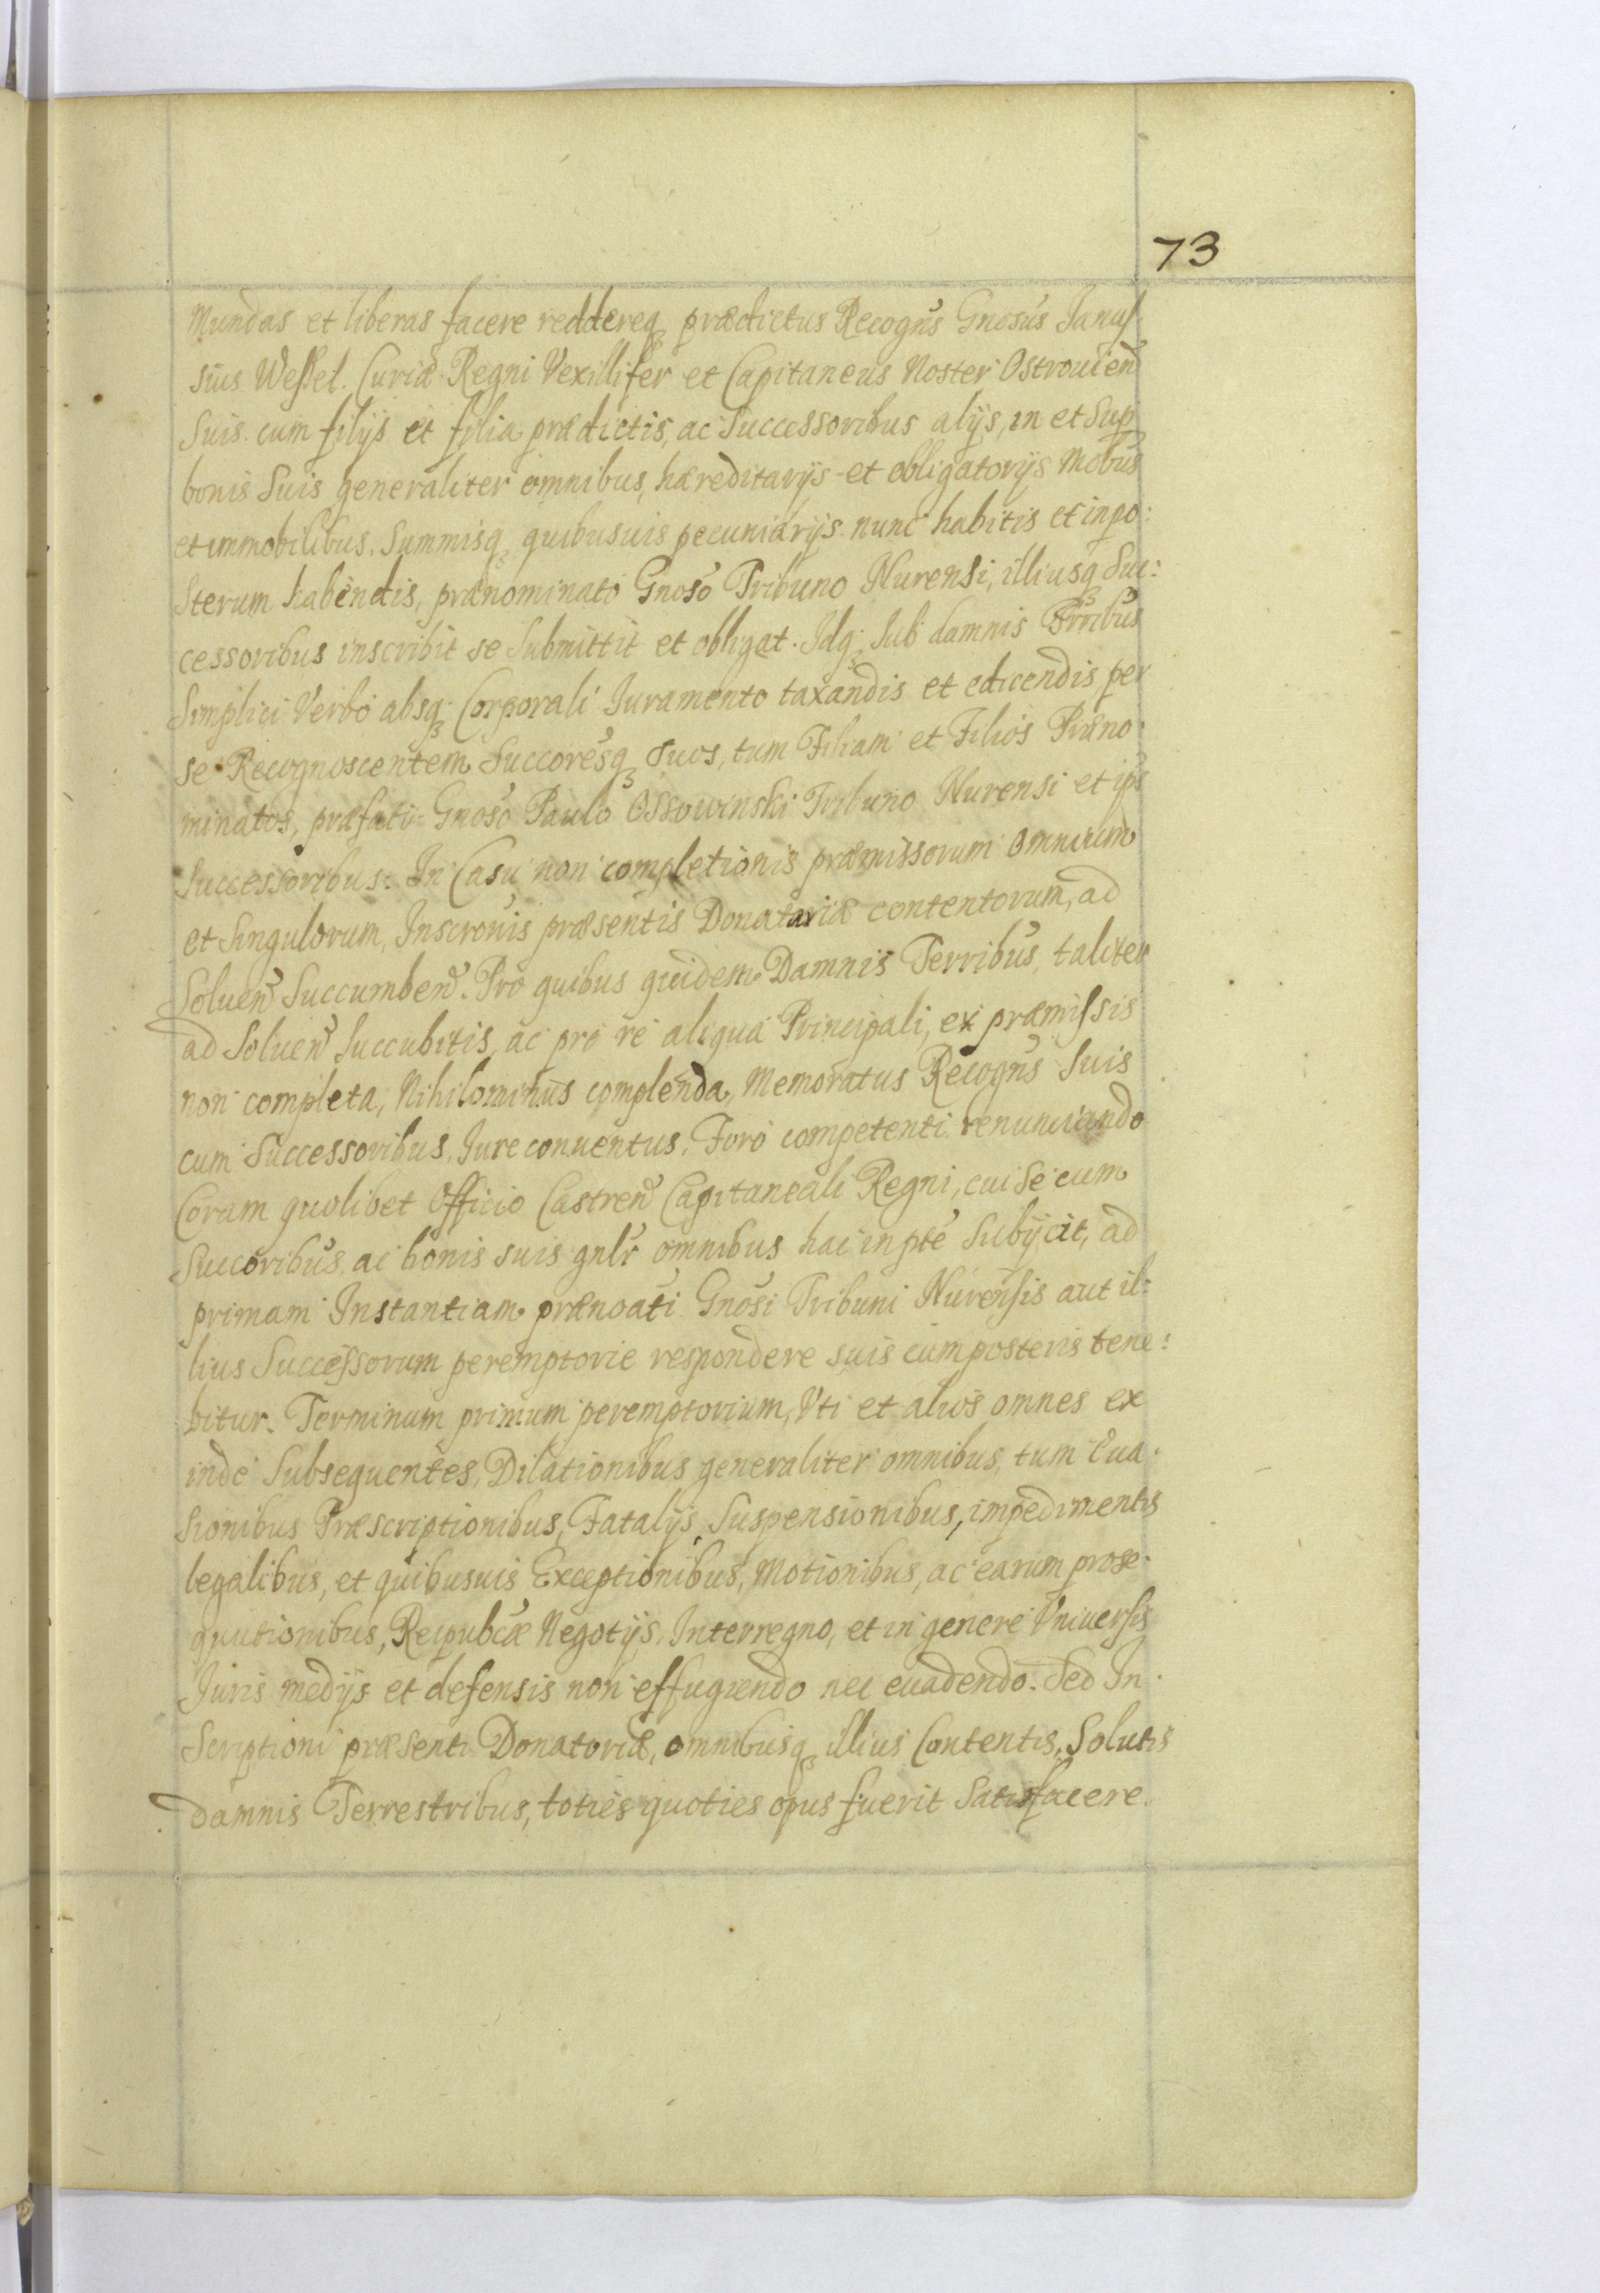 73
Mundas et liberas facere reddereq₃ prædictus Recogn̄s Gnosūs Janus
sius Wessel. Curiæ Regni Vexillifer et Capitaneus Noster Ostrouien̄
Suis cum filijs et filia prædictis, ac Successoribus alijs, in et Sup
bonis Suis generaliter omnibus, hæreditarijs et obligatorijs Mobūs
et immobilibus, Summisq₃ quibusuis pecuniarijs nunc habitis et inpo:
sterum habendis, prænominato Gnoso Tribuno Nurensi, illiusq₃ Suc:
cessoribus inscribit se Submittit et obligat. Idq₃ Sub damnis Trribūs
Simplici Verbo absq₃ Corporali Juramento taxandis et edicendis per
se Recognoscentem Succoresq₃ Suos, tum Filiam et Filios Præno:
minatos, præfato Gnoso Paulo Ossowinski Tribuno Nurensi et ips
Successoribus. In Casu non completionis præmissorum omnium
et Singulorum, Inscrōnis præsentis Donatoriæ contentorum, ad
Soluen̄ Succumben̄. Pro quibus quidem Damnis Terribūs, taliter
ad Soluen̄ Succubitis, ac pro re aliqua Principali, ex præmissis
non completa, Nihilominus complenda, Memoratus Recogn̄s Suis
cum Successoribus, Jure conuentus, Foro competenti renunciando
Coram quolibet Officio Castren̄ Capitaneali Regni, cui Se cum
Succoribūs, ac bonis suis gnlr omnibus hac in pte Subijcit, ad
primam Instantiam prænoati Gnosi Tribuni Nurensis aut il:
lius Successorum peremptorie respondere suis cum posteris tene:
bitur. Terminum primum peremptorium, Vti et alios omnes ex
inde Subsequentes, Dilationibus generaliter omnibus, tum Eua:
sionibus Præscriptionibus, Fatalijs, Suspensionibus, impedimentis
legalibus, et quibusuis Exceptionibus, Motionibus, ac earum prose:
quutionibus, Reipubcæ Negotijs, Interregno, et in genere Vniuersis
Juris medijs et defensis non effugiendo nec euadendo. Sed In:
Scriptioni præsenti Donatoriæ, omnibusq₃ illius Contentis, Solutis
damnis Terrestribus, toties quoties opus fuerit Satisfacere.